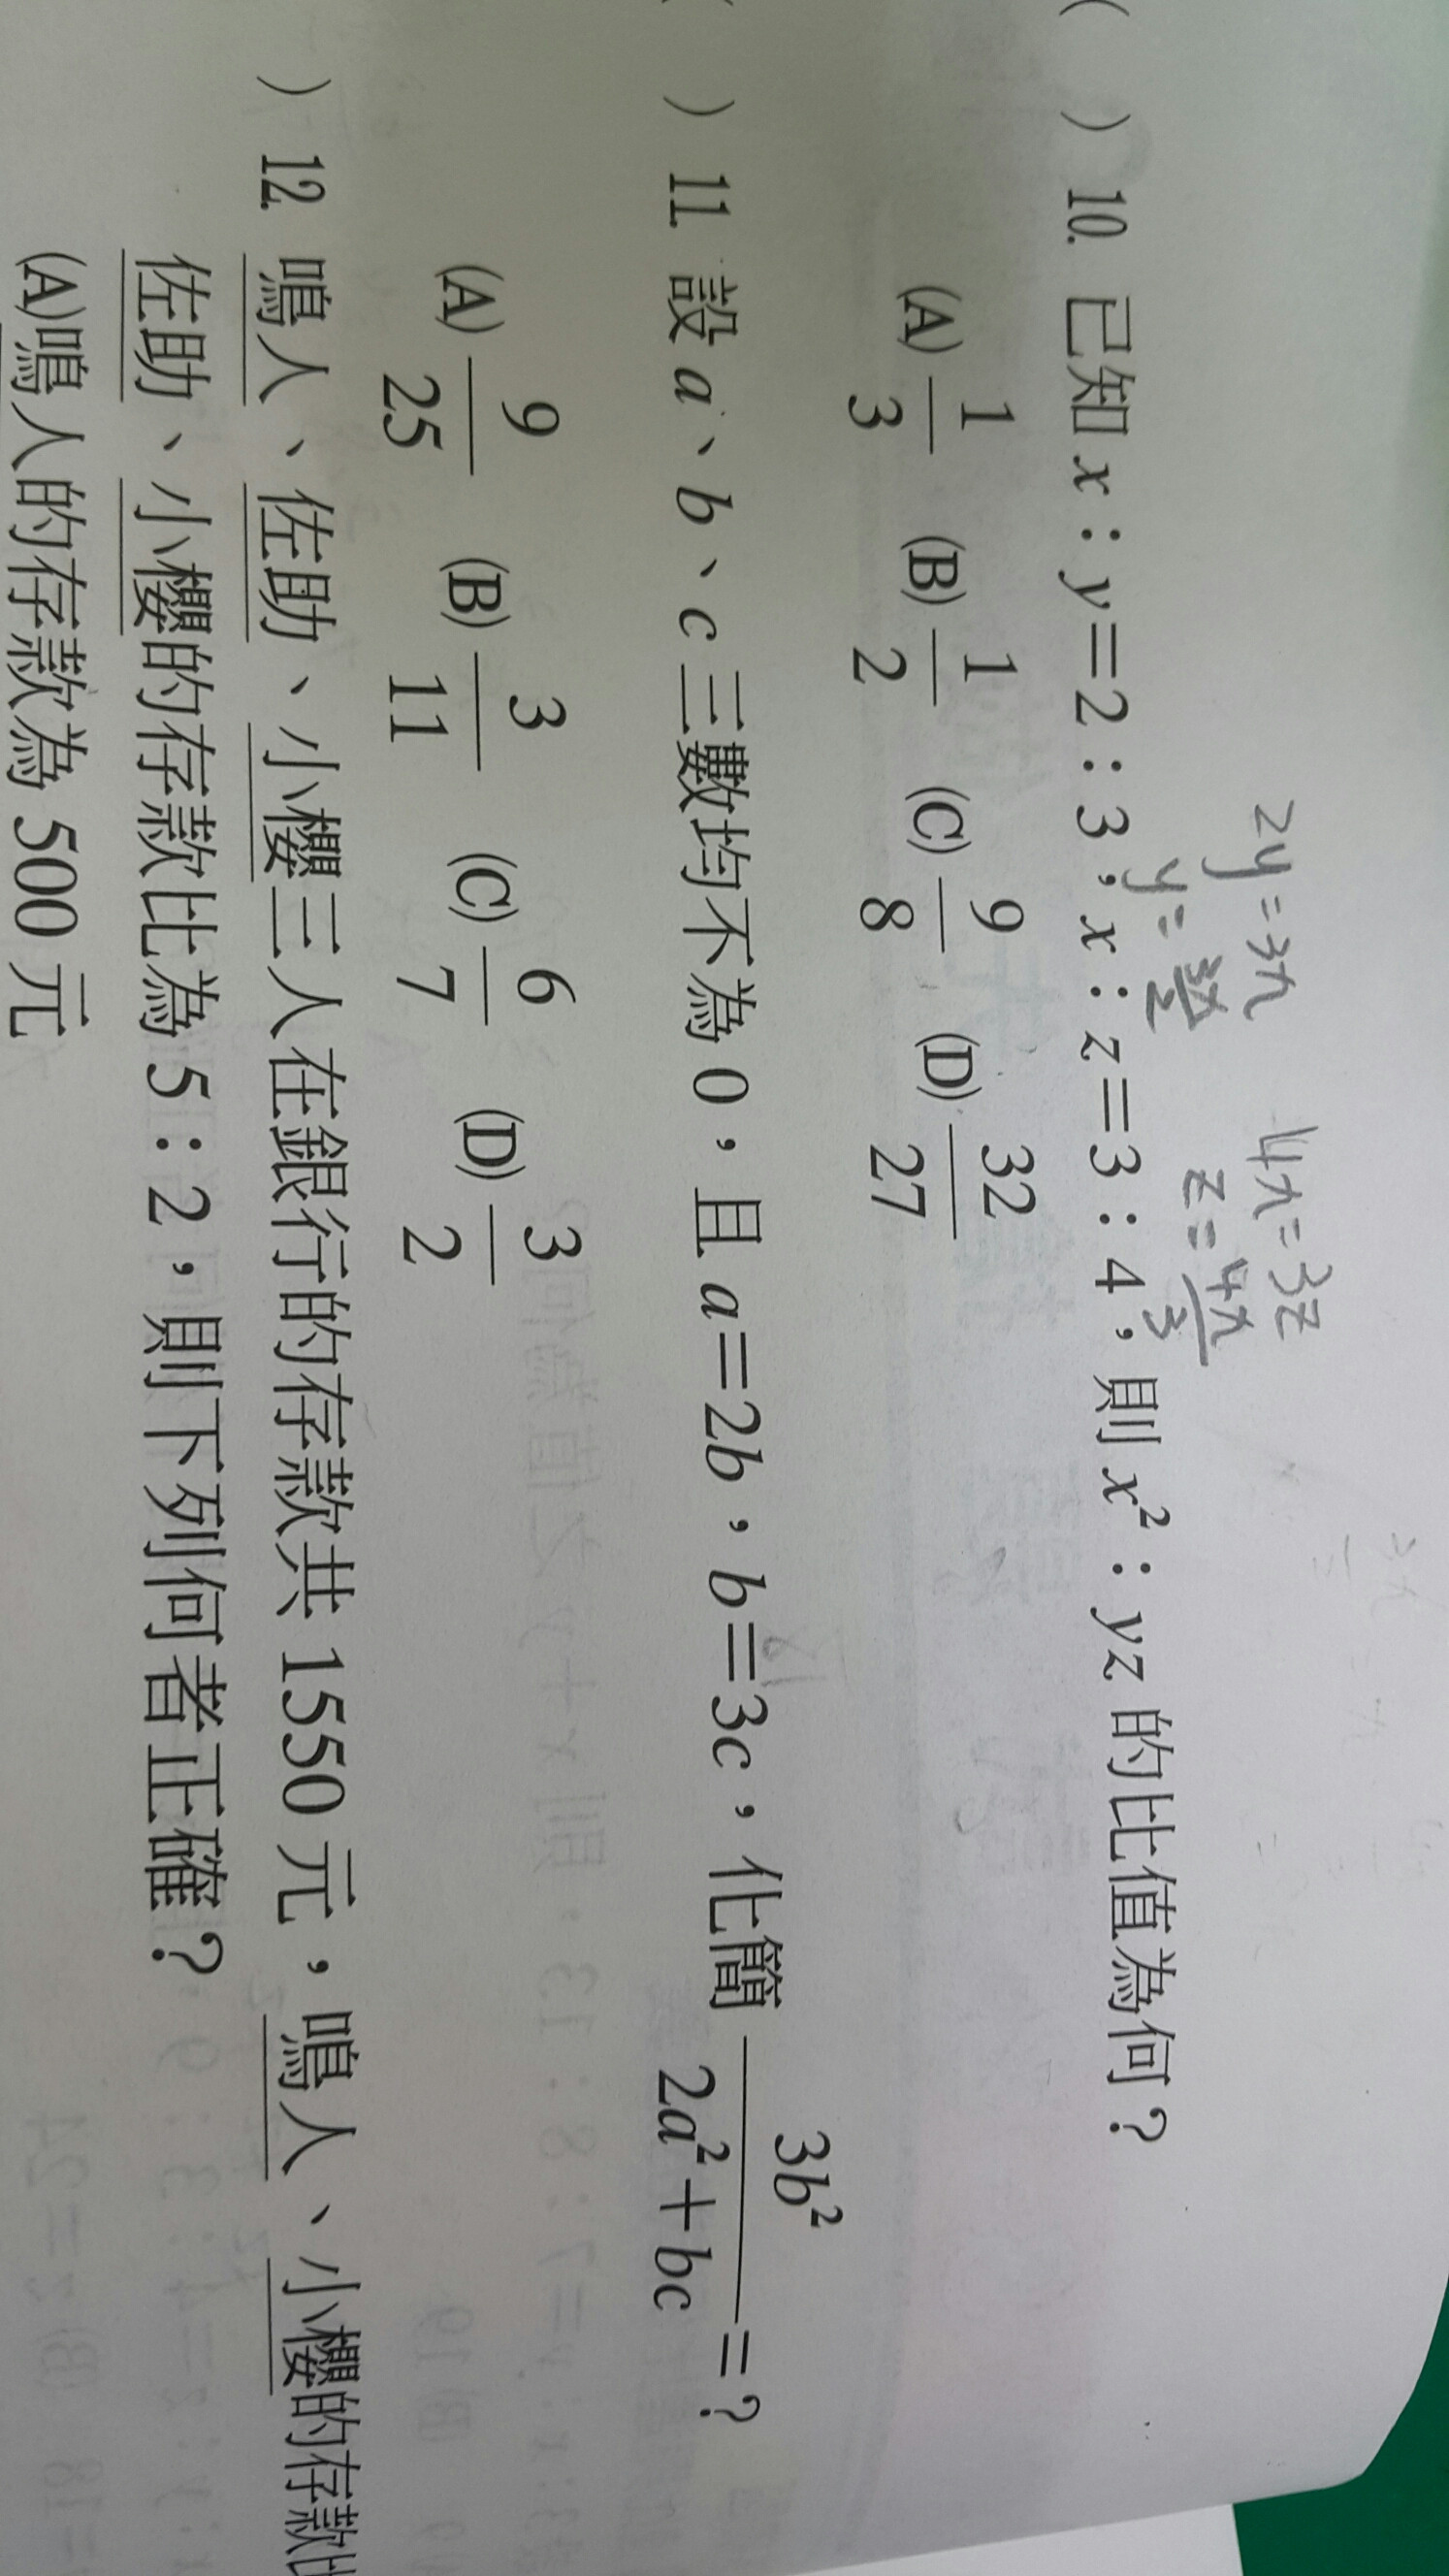 2y=3x 4x=3z
y=3x/2 z=4x/3
( ) 10. 已知 x：y=2：3，x：z=3：4，則 x²：yz 的比值為何？
(A) 1/3 (B) 1/2 (C) 9/8 (D) 32/27
( ) 11. 設 a、b、c 三數均不為 0，且 a=2b，b=3c，化簡 3b²/(2a²+bc) =？
(A) 9/25 (B) 3/11 (C) 6/7 (D) 3/2
) 12. 鳴人、佐助、小櫻三人在銀行的存款共 1550 元，鳴人、小櫻的存款比
佐助、小櫻的存款比為 5：2，則下列何者正確？
(A)鳴人的存款為 500 元